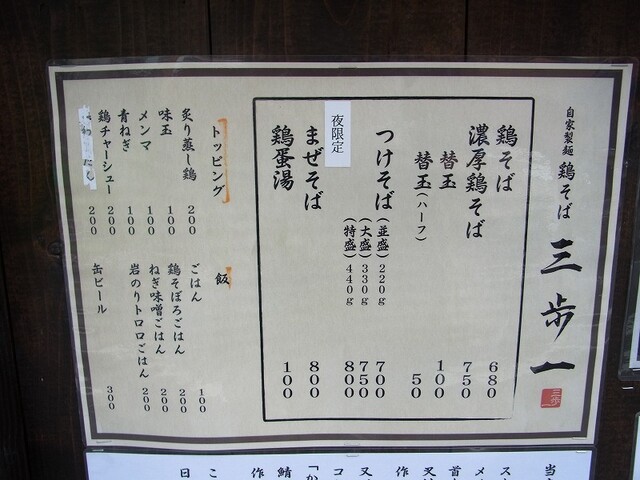 自家製麺 鶏そば 三歩一
三歩一
鶏そば 680
濃厚鶏そば 750
替玉 100
替玉(ハーフ) 50
つけそば (並盛)220g 700
(大盛)330g 750
(特盛)440g 800
夜限定
まぜそば 800
鶏蛋湯 100
トッピング
炙り蒸し鶏 200
味玉 100
メンマ 100
青ねぎ 100
鶏チャーシュー 200
200
飯
ごはん 100
鶏そぼろごはん 200
ねぎ味噌ごはん 200
岩のりトロロごはん 200
缶ビール 300